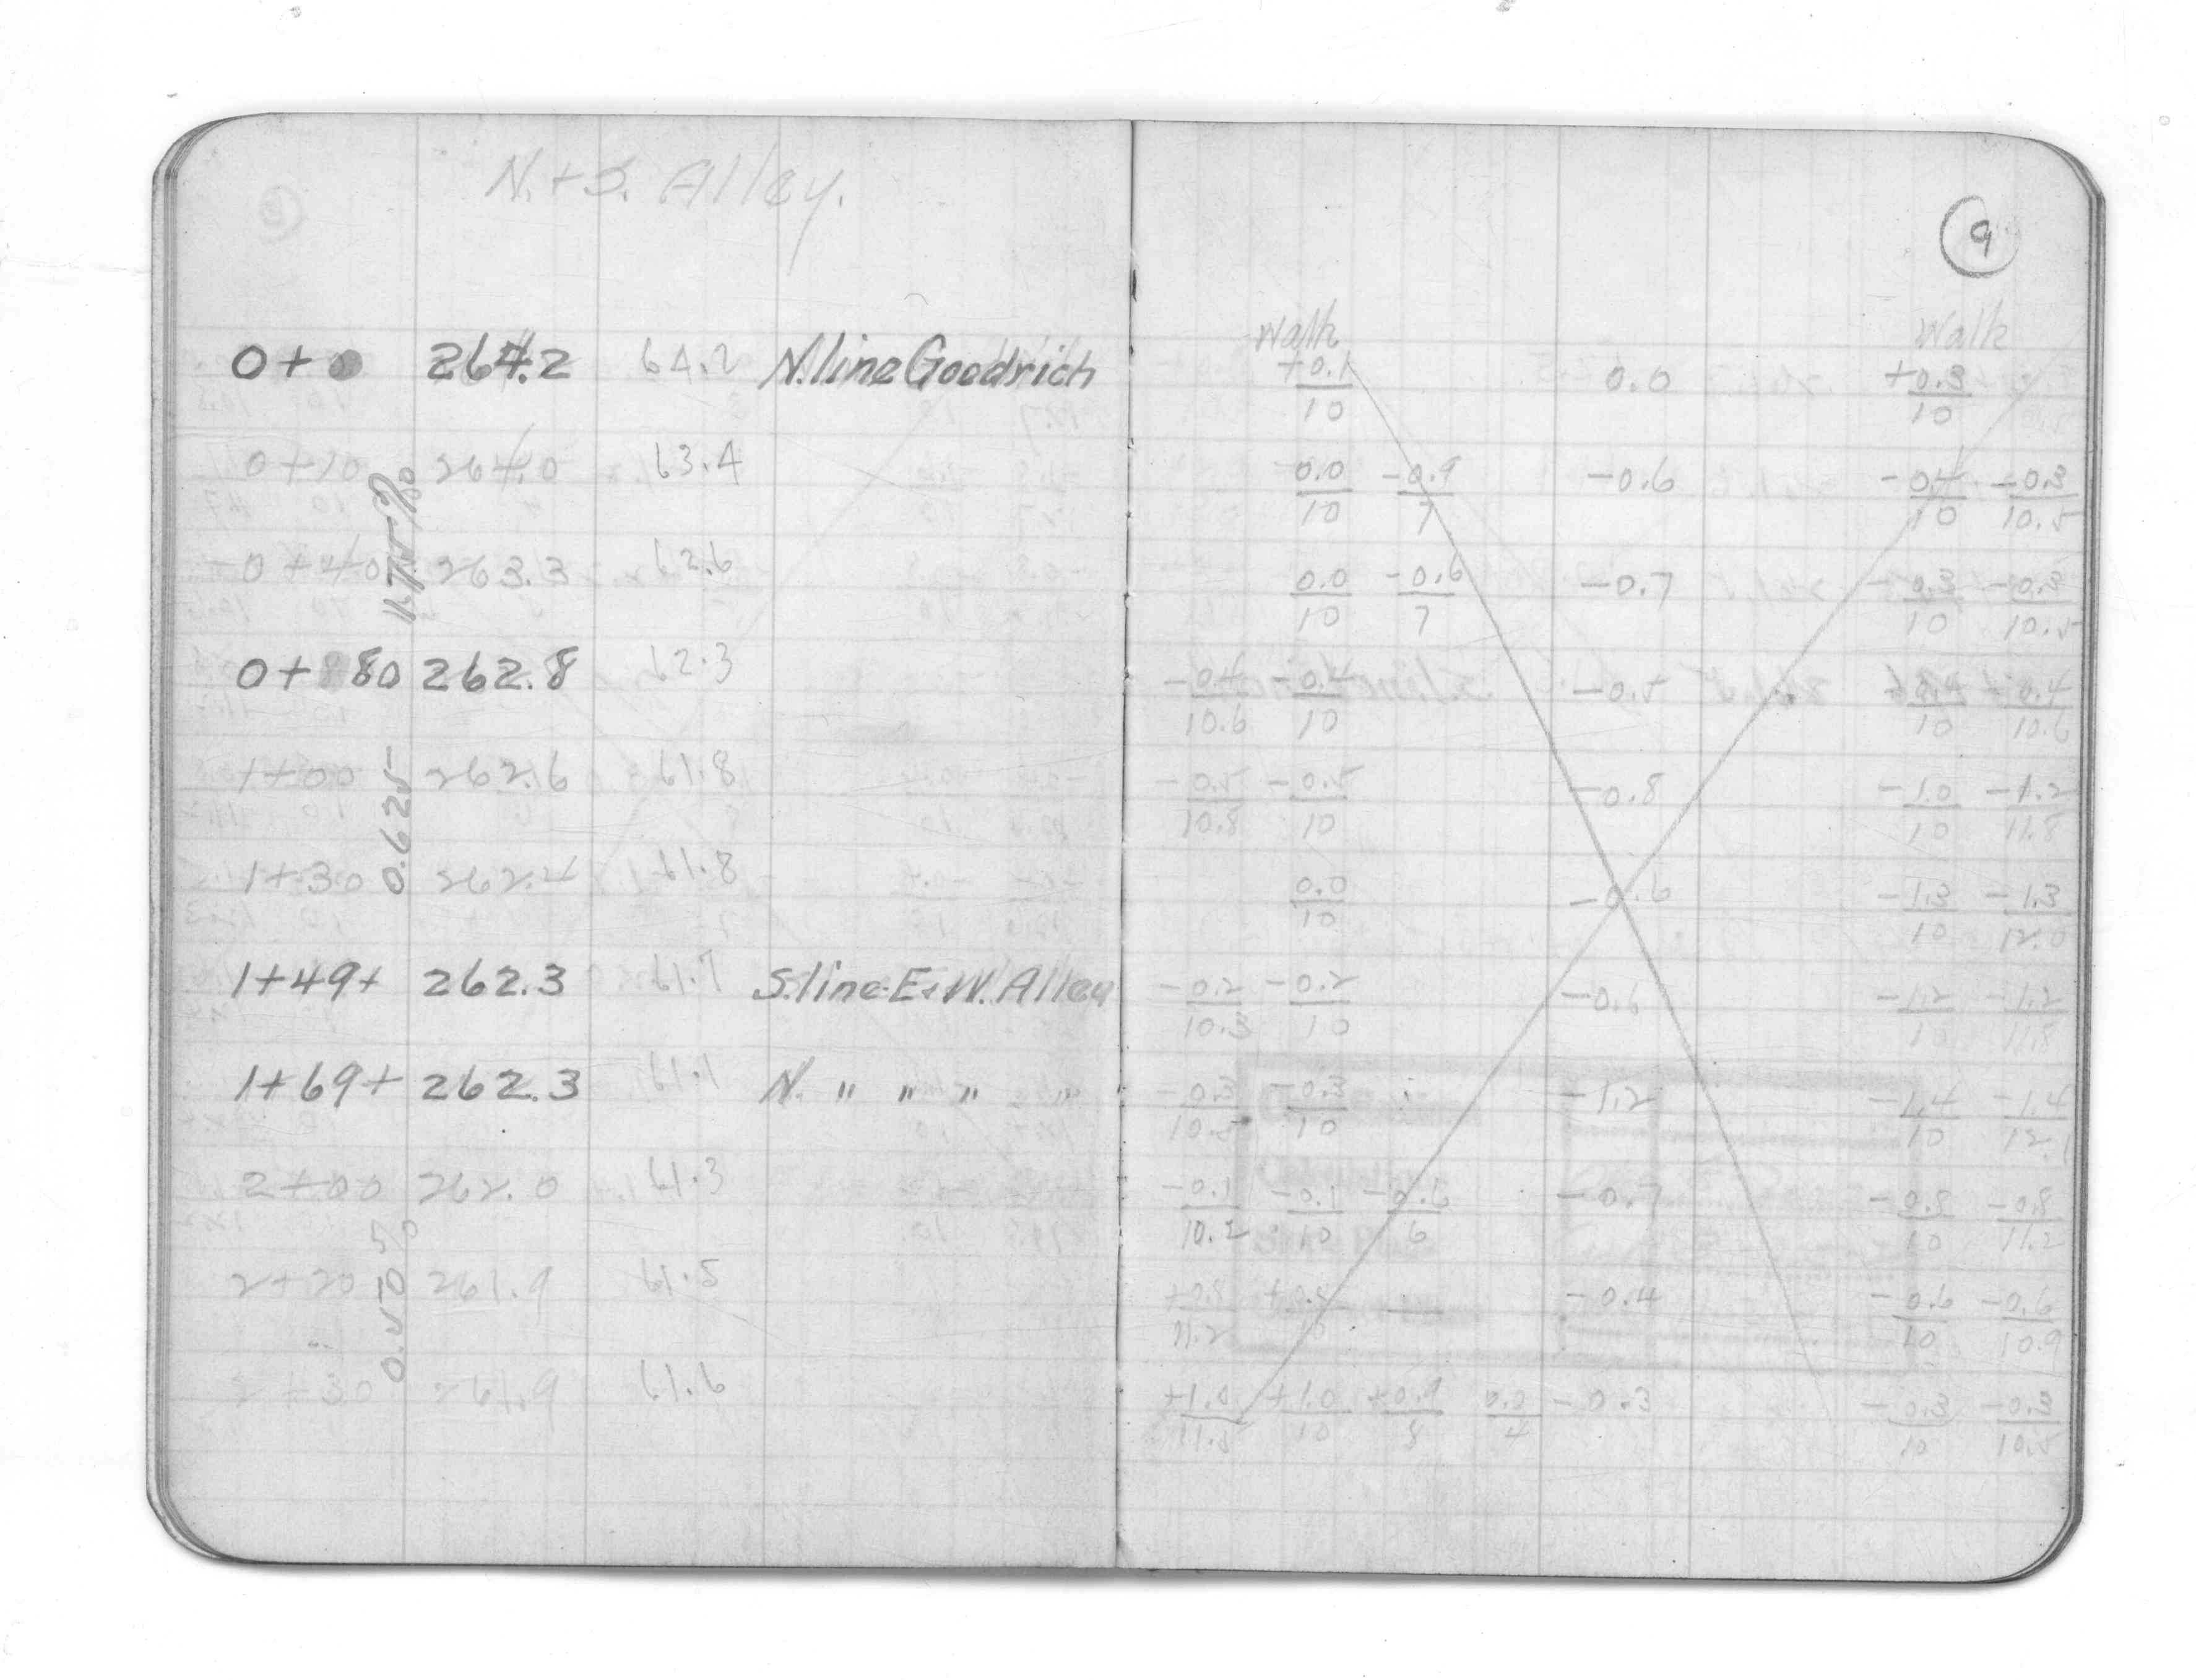 N.+S. Alley.
9
Walk Walk
0+0 264.2 64.2 N. line Goodrich +0.1/10 0.0 +0.3/10
0+20 264.0 63.4 0.0/10 -0.9/7 -0.6 -0.4/10 -0.3/10.5
1.75%
0+40 263.3 62.6 0.0/10 -0.6/7 -0.7 -0.3/10 -0.3/10.5
0+80 262.8 62.3 -0.4/10.6 -0.4/10 -0.5 +0.4/10 +0.4/10.6
1+00 262.6 61.8 -0.5/10.8 -0.5/10 -0.8 -1.0/10 -1.2/11.8
0.625
1+30 262.4 61.8 0.0/10 -0.6 -1.3/10 -1.3/12.0
1+49+ 262.3 61.7 S. line E+W. Alley -0.2/10.3 -0.2/10 -0.6 -1.2/10 -1.2/11.8
1+69+ 262.3 61.1 N. " " " " -0.3/10.5 -0.3/10 -1.2 -1.4/10 -1.4/12.1
2+00 262.0 61.3 -0.1/10.2 -0.1/10 -0.6/6 -0.7 -0.8/10 -0.8/11.2
0.50%
2+20 261.9 61.5 +0.8/11.2 -0.4 -0.6/10 -0.6/10.9
2+30 261.9 61.6 +1.0/11.5 +1.0/10 +0.9/8 0.0/4 -0.3 -0.3/10 -0.3/10.5